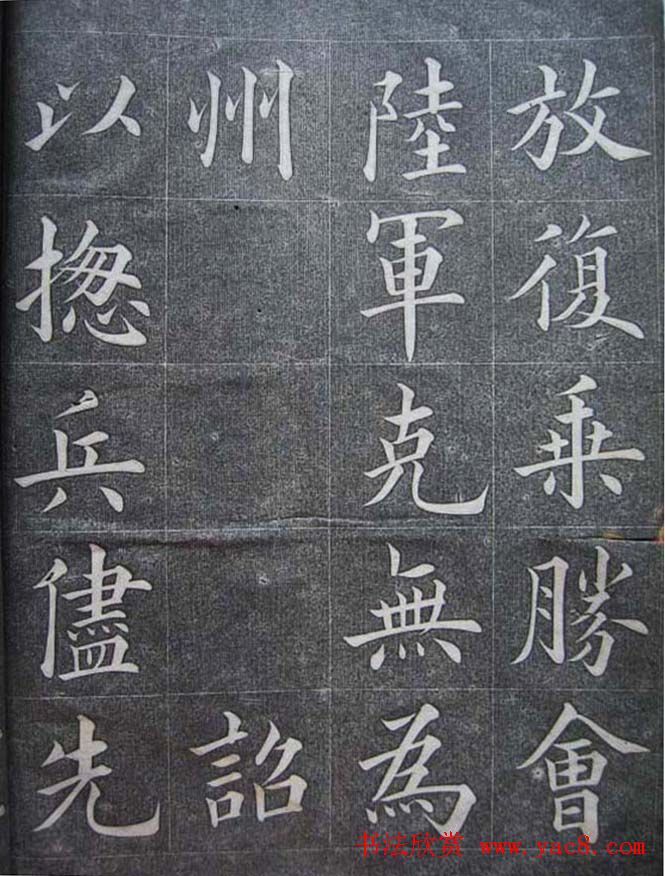 放復乗勝會
陸軍克無為
州詔
以揔兵儘先
书法欣赏 www.yac8.com